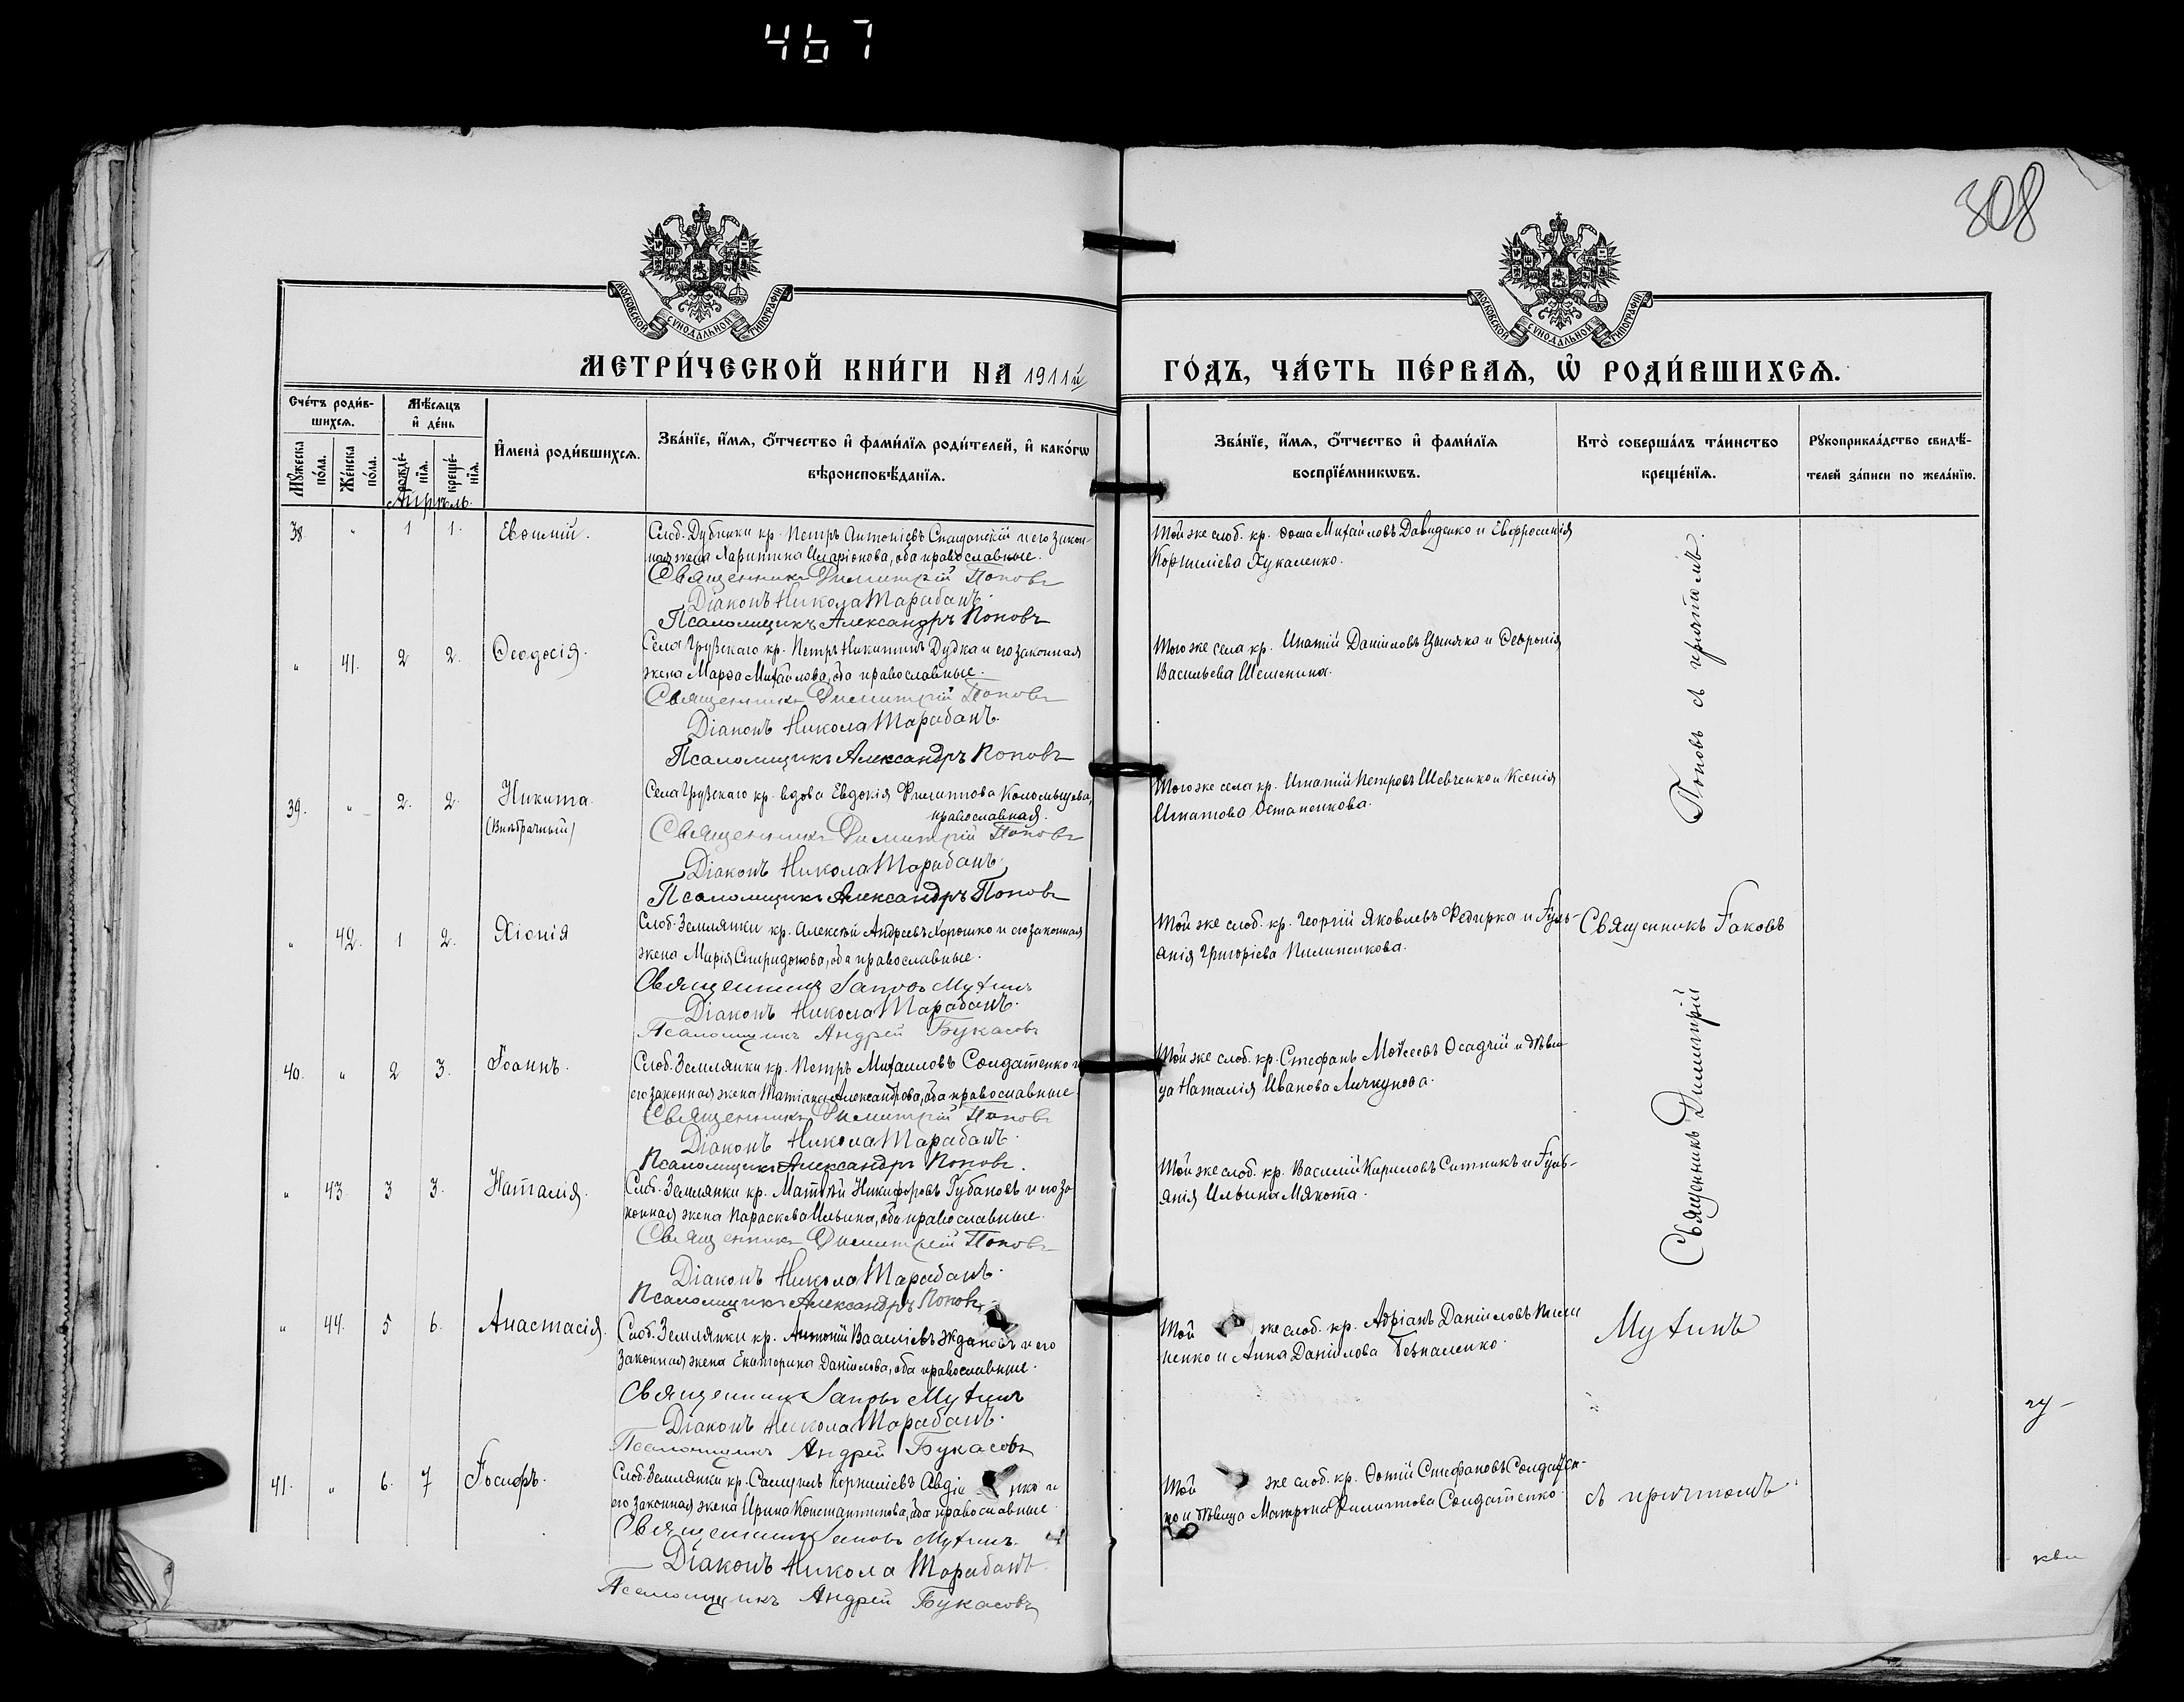 467
308
МОСКОВСКОЙ СѴНОДАЛЬНОЙ ТИПОГРАФІИ
МОСКОВСКОЙ СѴНОДАЛЬНОЙ ТИПОГРАФІИ
МЕТРИ́ЧЕСКОЙ КНИ́ГИ НА 1911й
ГО́ДЪ, ЧА́СТЬ ПЕ́РВАѦ, Ѡ҆ РОДИ́ВШИХСѦ.
Сче́тъ роди́в-
шихсѧ.
Мѣ́сѧцъ
и҆ де́нь
Мꙋ́жеска по́ла.
Же́нска по́ла.
рожде́-нїѧ.
креще́-нїѧ.
И҆мена̀ роди́вшихсѧ.
Зва́нїе, и҆́мѧ, ѻ҆́тчество и҆ фами́лїѧ роди́телей, и҆ како́гѡ
вѣроисповѣ́данїѧ.
Зва́нїе, и҆́мѧ, ѻ҆́тчество и҆ фами́лїѧ
воспрїе́мникѡвъ.
Кто̀ соверша́лъ та́инство
креще́нїѧ.
Рꙋкоприкла́дство свидѣ́-
телей за́писи по жела́нїю.
Апрѣль.
38. " 1 1. Евѳимій.
Слоб. Дубники кр. Петръ Антоніевъ и его закон-
ная жена Харитина Иларіонова, оба православные.
Священникъ Димитрій Поповъ
Діаконъ Никола Марабанъ.
Псаломщикъ Александръ Поповъ
Той же слоб. кр. Ѳома Михайловъ Давиденко и Евфросинія
Корнилієва Жукаленко.
" 41. 2 2. Ѳеодосія.
Села Грузскаго кр. Петръ Никитинъ Дудка и его законная
жена Марѳа Михайлова, оба православные.
Священникъ Димитрій Поповъ
Діаконъ Никола Марабанъ.
Псаломщикъ Александръ Поповъ
Того же села кр. Ипатій Даніиловъ и Февронія
Васильева Шешенина.
39. " 2. 2. Никита.
(Внѣбрачный)
Села Грузскаго кр. вдова Евдокія Филиппова Коломыцева,
православная.
Священникъ Димитрій Поповъ
Діаконъ Никола Марабанъ.
Псаломщикъ Александръ Поповъ
Того же села кр. Игнатій Петровъ Шевченко и Ксенія
Игнатова Остапенкова.
" 42. 1 2. Хіонія
Слоб. Землянки кр. Алексѣй Андреевъ Хорошко и его законная
жена Марія Спиридонова, оба православные.
Священникъ Іаковъ Мухинъ
Діаконъ Никола Марабанъ.
Псаломщикъ Андрей Букасовъ
Той же слоб. кр. Георгій Яковлевъ Федирка и Іулі-
анія Григоріева Пилипенкова.
Священникъ Іаковъ
40. " 2 3. Іоаннъ.
Слоб. Землянки кр. Петръ Михаиловъ Солдатенко и
его законная жена Татіана Александрова, оба православные.
Священникъ Димитрій Поповъ
Діаконъ Никола Марабанъ.
Псаломщикъ Александръ Поповъ.
Той же слоб. кр. Стефанъ Моѵсеевъ Осадчій и дѣви-
ца Наталія Иванова Личкунова.
" 43. 3 3. Наталія.
Слоб. Землянки кр. Матѳѣй Никифоровъ Губановъ и его за-
конная жена Параскева Ильина, оба православные.
Священникъ Димитрій Поповъ
Діаконъ Никола Марабанъ.
Псаломщикъ Александръ Поповъ
Той же слоб. кр. Василій Кириловъ Ситникъ и Іулі-
анія Ильина Мякота.
Священникъ Димитрій Поповъ съ причтомъ.
" 44. 5 6. Анастасія.
Слоб. Землянки кр. Антоній Василіевъ Ждановъ и его
законная жена Екатерина Даніилова, оба православные.
Священникъ Іаковъ Мухинъ
Діаконъ Никола Марабанъ.
Псаломщикъ Андрей Букасовъ
Той же слоб. кр. Адріанъ Даніиловъ Пили-
пенко и Анна Даніилова
Мухинъ
41. " 6. 7 Іосифъ.
Слоб. Землянки кр. Самуилъ Корниліевъ Авдіенко и
его законная жена Ирина Константинова, оба православные.
Священникъ Іаковъ Мухинъ.
Діаконъ Никола Марабанъ.
Псаломщикъ Андрей Букасовъ
Той же слоб. кр. Фотій Стефановъ Солдатен-
ко и дѣвица Матрона Филиппова Солдатенко.
съ причтомъ.